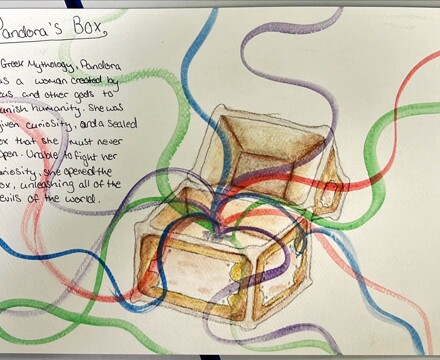 Pandora's Box,
Greek Mythology, Pandora
was a woman created by
Zeus and other gods to
punish humanity. She was
given curiosity, and a sealed
box that she must never
open. Unable to fight her
curiosity, she opened the
box, unleashing all of the
evils of the world.